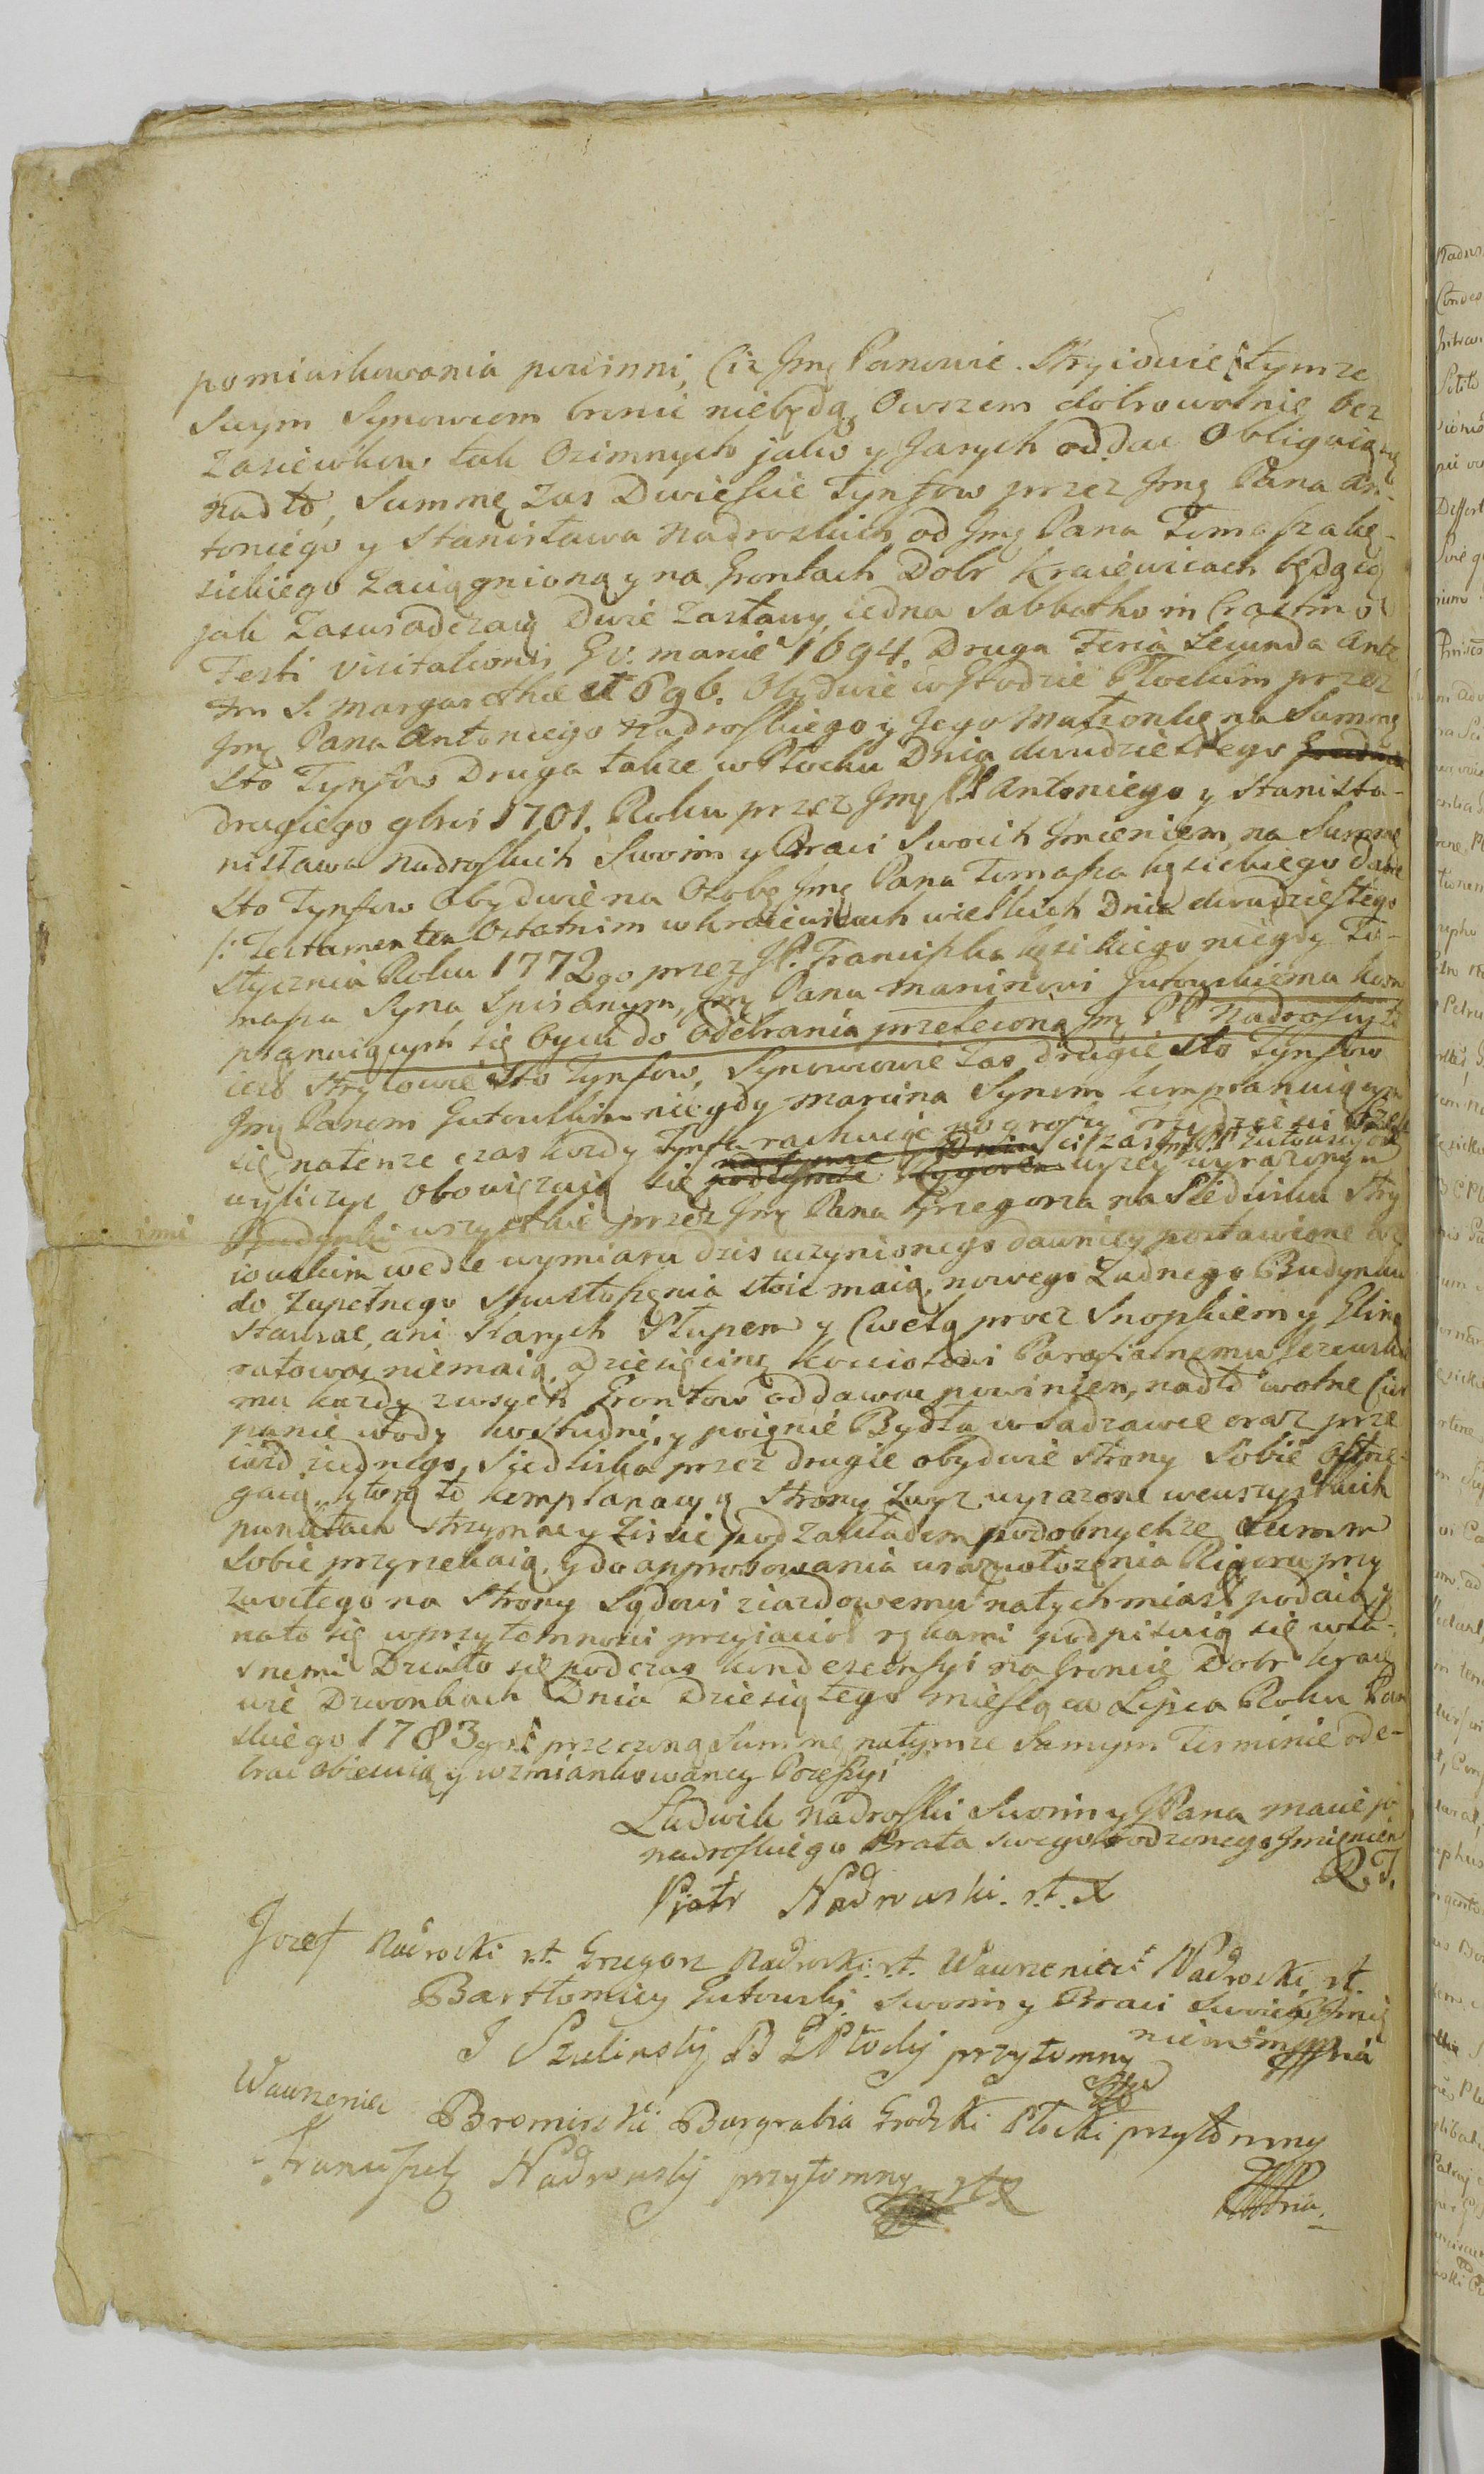 pomiarkowania powinni, Ciz Jmę Panowie Stryiowie tymze
swym Synowcom bronic niebędą, Owszem dobrowolnie bez
Zasiewkow tak Ozimnych jako y Jarych oddac Obliguią się
nadto, Summę zas Dwiescie Tynfow przez Jmę Pana An-
toniego y Stanisława Nadroskich od Jmę Pana Tomasza Łę-
sickiego Zaciągnioną y na Grontach Dobr Kraiewicach będącą
jak Zaswiadczaią Dwie Zastawy, iedna Sabbatho in Crastino
Festi Visitationis G. V. Mariæ 1694. Druga Feria Secunda Ante
Fm S. Margarethæ 1696. Obydwie w Grodzie Płockim przez
Jmę Pana Antoniego Nadroskiego y Jego Małzonkę na Summę
Sto Tynfow Druga takze w Płocku Dnia dwudziestego
drugiego 9bris 1701. Roku przez Jmę PP Antoniego y Stanisła-
nisława Nadroskich Swoim y Braci Swoich Jmieniem, na Summę
Sto Tynfow Obydwie na Osobę Jmę Pana Tomasza Łęsickiego dane
/: Testamentem Ostatnim w Kraiewicach wielkich Dnia dwudziestego
stycznia Roku 1772go przez JP. Franciszka Łęsickiego niegdy To-
masza Syna Spisanym, Jmę Panu Marcinowi Gutowskiemu kom
planuiących się bydz do Odebrania przeleconą Jmę PP Nadroscy to
iest Stryiowie Sto Tynfow, Synowcowie zas drugie Sto Tynfow
Jmę Panem Gutowskim niegdy Marcina Synem komplanuiącym
się natenze czas kozdy Tynf rachuiąc po groszy Trzydziesci Osm
wyliczyc Obowięzuią się wyzey wyrazonym
inne
Budynki wszystkie przez Jmę Pana Grzegorza na Siedlisku Stry
iowskim wedle wymiaru dzis uczynionego dawniey postawione az
do Zupełnego Spustoszenia stoic maią, nowego Zadnego Budynku
stawiac, ani Starych Słupem y Cwelą procz Snopkiem y Gliną
ratowac niemaią, Dziesięcinę kosciołowi Parafialnemu
mu kazdy zwoych Grontow oddawac powinien, nadto wolne Cier
panie wody ko studni, y poięnie Bydła w sadzawce oraz prze
iazd ziednego Siedliska przez drugie obydwie strony Sobie ostrze-
gaią, ktorą to komplanacyą Strony Zwyz wyrazone wewszystkich
punktach strzymac y ziscic pod zakładem podobnychze Summ
Sobie przyrzekaią, y do approbowania wraz włozenia Rigoru przy
zwoitego na Strony Sądowi ziazdowemu natychmiast podaią y
nato się wprzytomnosci przyiacioł rękami podpisuią się wła-
snemi Działo się podczas kondescensyi na Groncie Dobr Krai
wie Dzwonkach Dnia Dziesiątego miesiąca Lipca Roku Pan
skiego 1783go przeczoną Summę natymze Samym Terminie ode-
brac obiecuią y wzmiankowaney Possesyi
Ludwik Nadroski Swoim y JPana Macieja
Nadroskiego Brata swego rodzonego Jmieniem
R. T.
Piotr Nadrowski
Jozef Nadrocki Grzegorz Nadrocki Wawrzeniec Nadrocki
Bartłomiey Gutowski swoim y Braci swoich Jmię
niem
J Szulinsky B G Płocky przytomny
Wawrzeniec Bromirski Burgrabia Grodzki Płocki przytomny
Franciszek Nadrowsky przytomny